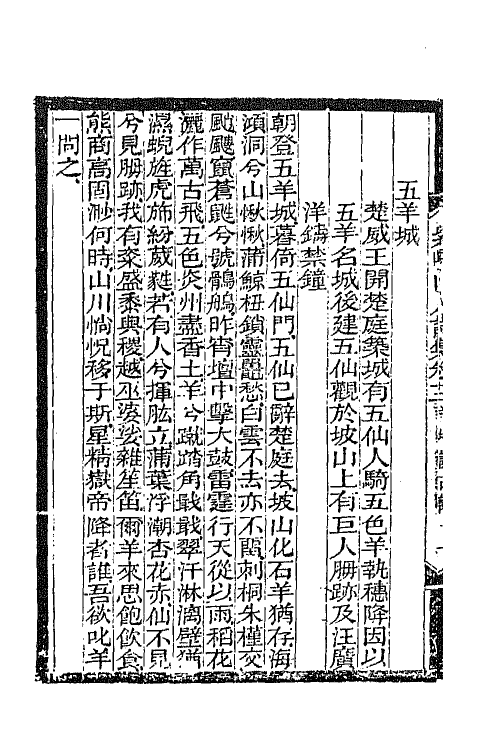 五羊城
楚威王開楚庭築城有五仙人騎五色羊執穗降因以
五羊名城後建五仙觀於坡山上有巨人跡及汪廣
洋鑄禁鐘
朝登五羊城暮倚五仙門五仙已辭楚庭去坡山化石羊猶存海
澒洞兮山愀愀蒲鯨杻鎖靈鼉愁白雲不去亦不關刺桐朱槿交
颭颸竄蒼鼪兮號鶻鵃昨宵壇中擊大鼓雷霆行天從以雨稻花
灑作萬古飛五色炎州盡香土羊兮蹴踏角戢戢翠汗淋漓壁猶
濕蜺旌虎旆紛葳蕤若有人兮揮肱立蒲葉浮潮杏花赤仙不見
兮見跡我有粢盛黍與稷越巫婆娑雜笙笛爾羊來思飽飲食
熊商高固渺何時山川惝怳移于斯星精嶽帝降者誰吾欲叱羊
一問之